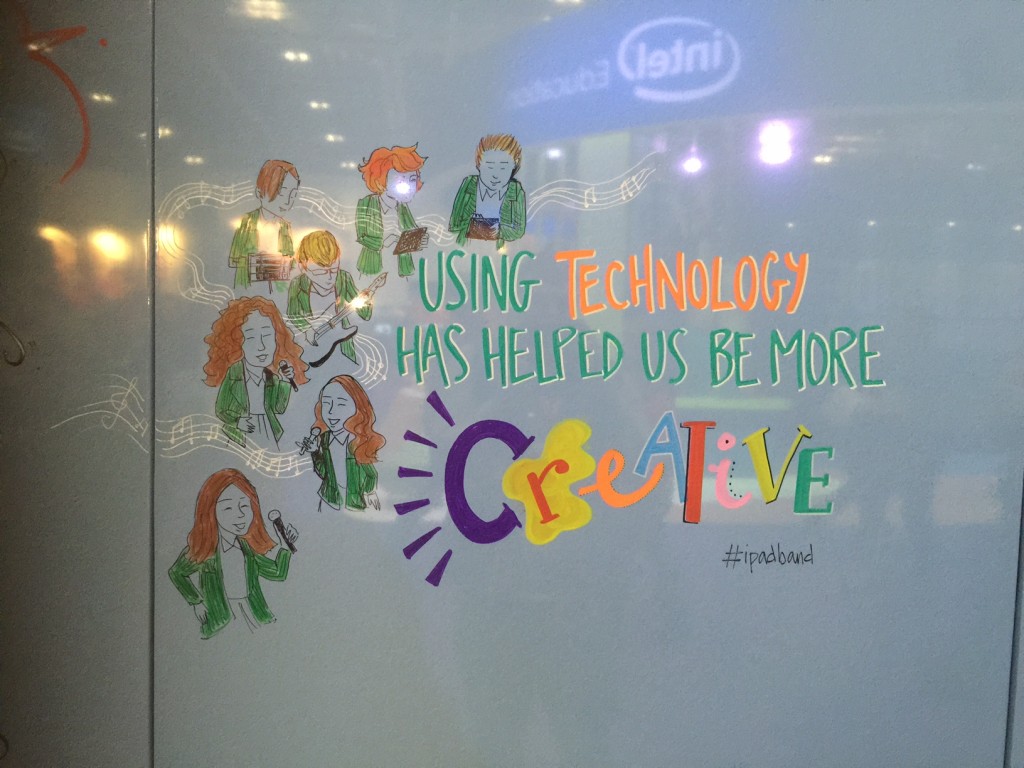 intel Education
USING TECHNOLOGY
HAS HELPED US BE MORE
CreATiVE
#ipadband